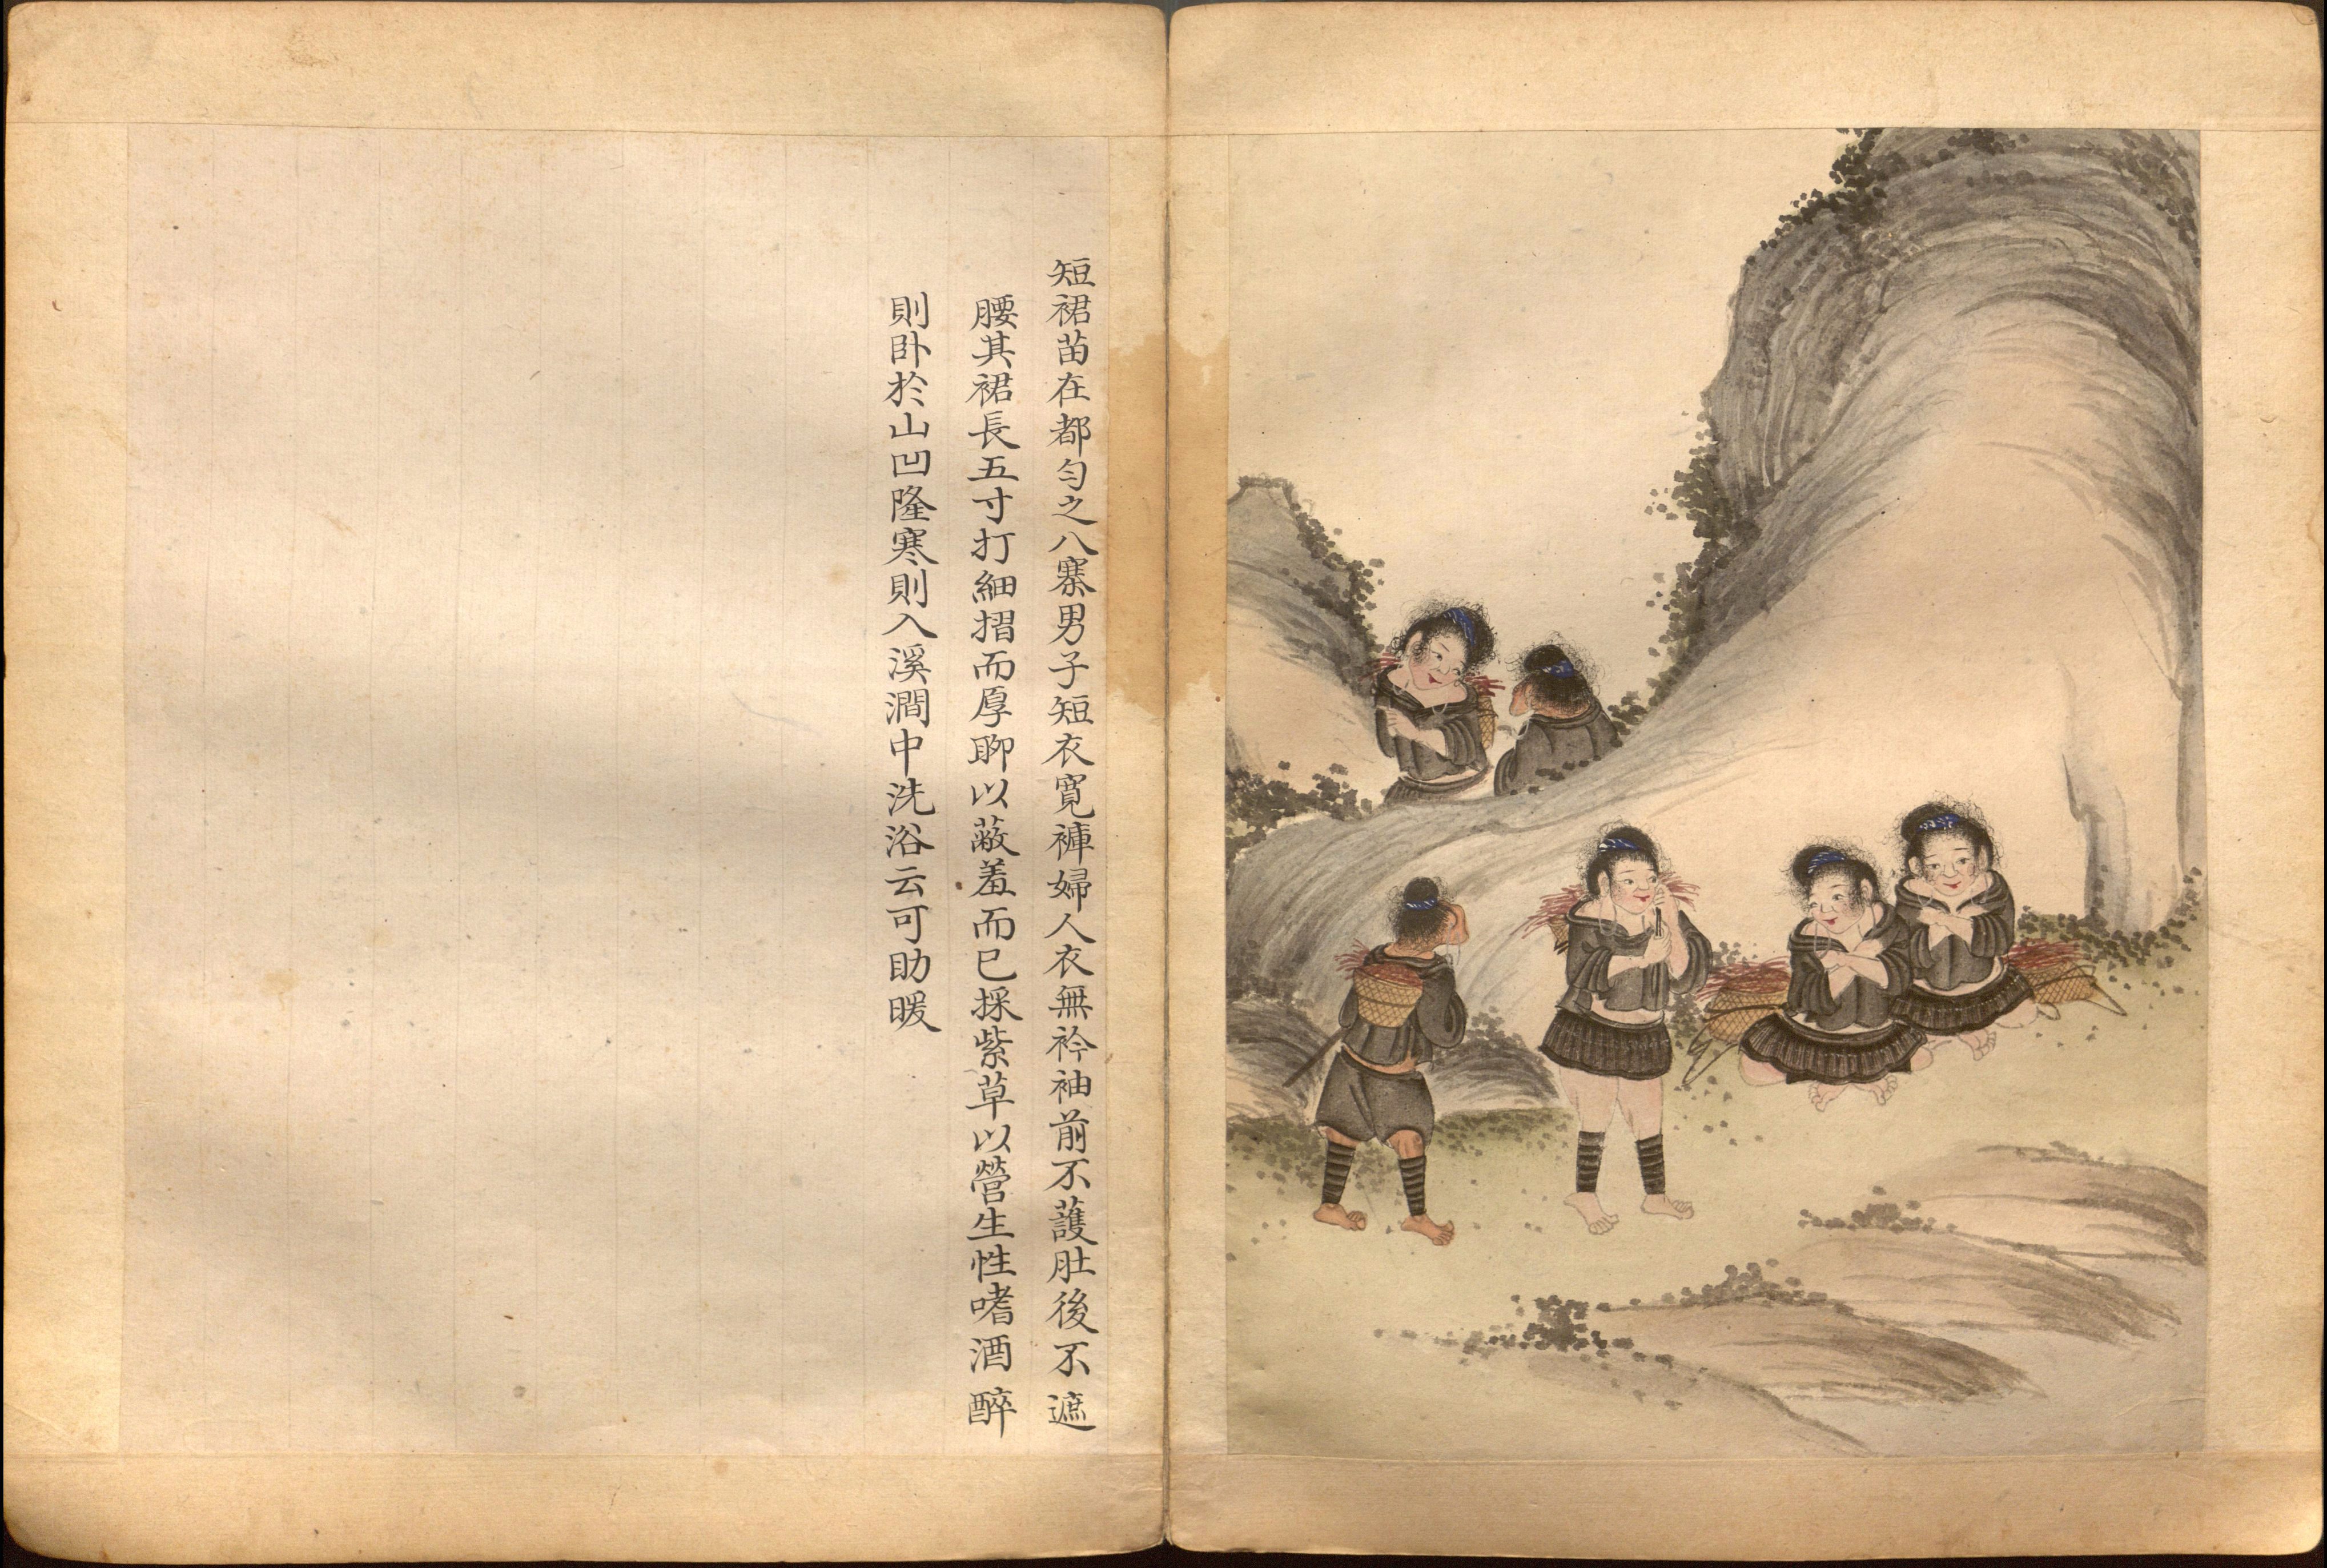 短裙苗在都匀之八寨男子短衣寬褲婦人衣無衿袖前不䕶肚後不遮
腰其裙長五寸打細摺而厚聊以蔽羞而已採紫草以營生性嗜酒醉
則卧於山凹隆寒則入溪澗中洗浴云可助暖